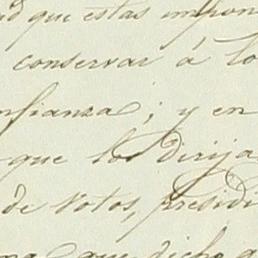 que estas impon
conservar á lo
nfianza; y en
que los dirija
de votos, presidi
que dicho